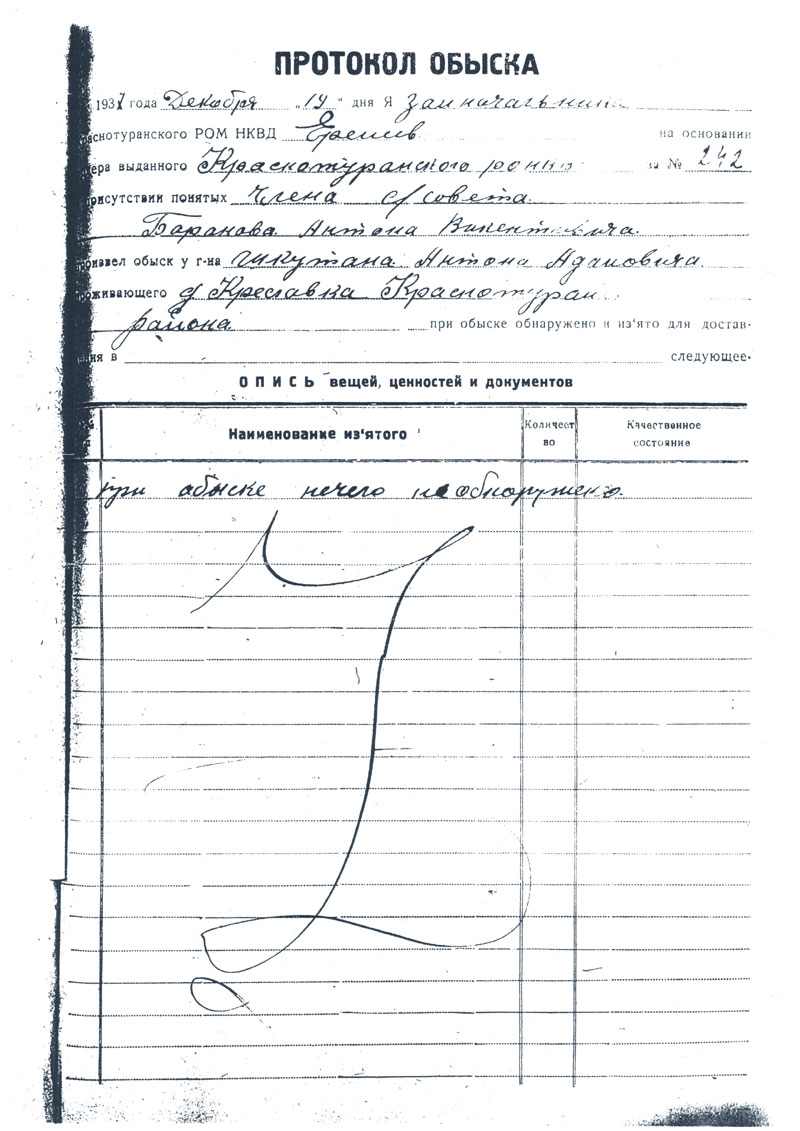 ПРОТОКОЛ ОБЫСКА
1937 года Декабря „19“ дня Я Замначальника
раснотуранского РОМ НКВД на основании
ера выданного Краснотуранского за № 242
рисутствии понятых Члена с/совета
Баранова Антона Викентьевича
роизвел обыск у г-на Антона Адамовича
роживающего д Креславка Краснотуран
района при обыске обнаружено и из'ято для достав-
ия в следующее-
ОПИСЬ вещей, ценностей и документов
Наименование из'ятого Количест во Качественное состояние
при обыске нечего не обнаружено.